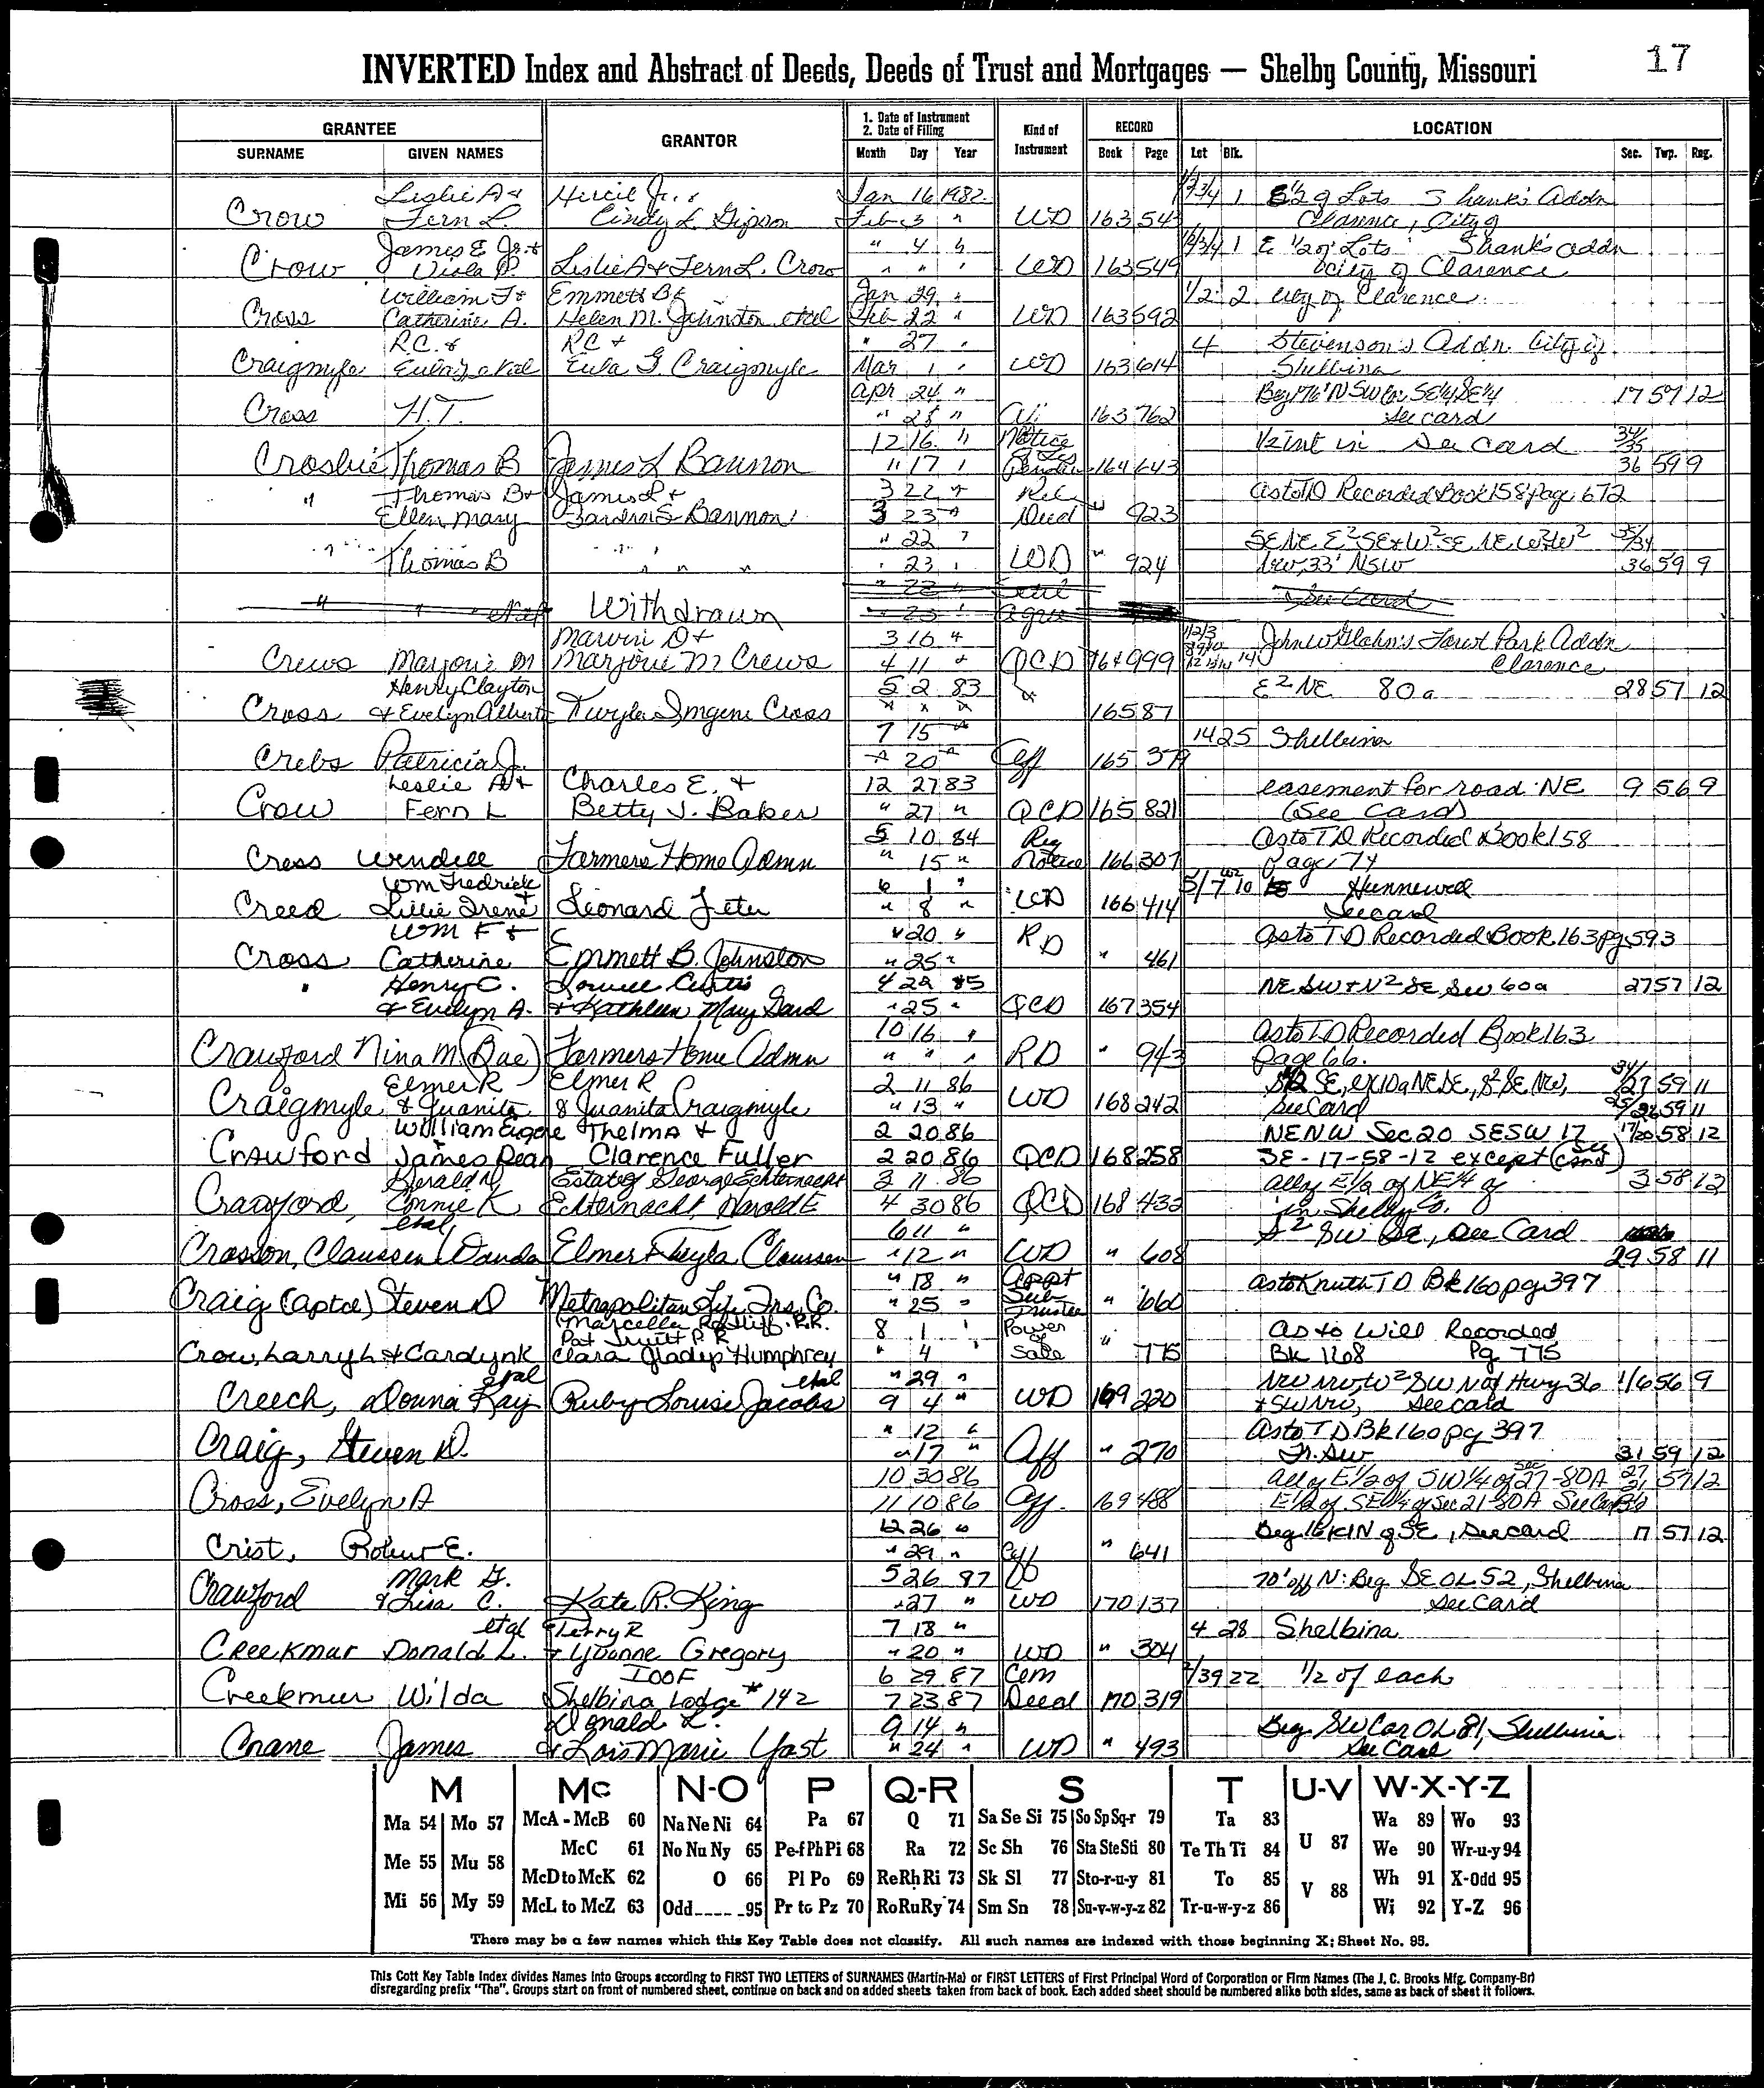 17
INVERTED Index and Abstract of Deeds, Deeds of Trust and Mortgages — Shelby County, Missouri
GRANTEE GRANTOR 1. Date of Instrument 2. Date of Filing Kind of Instrument RECORD LOCATION
SURNAME GIVEN NAMES Month Day Year Book Page Lot Blk. Sec. Twp. Rng.
Leslie A & Hircil Jr. & Jan 16 1982 1 E ½ of Lots Shank's Addn
Crow Fern L. Cindy L. Gipson Feb 3 " WD 163 543 Clarence, City of
James E Jr. & " 4 " 1 E ½ of Lots Shank's Addn
Crow Viola P. Leslie A & Fern L. Crow " " " WD 163 549 City of Clarence
William F & Emmett B & Jan 29 " 1/2 2 City of Clarence
Cross Catherine A. Helen M. Johnston etal Feb 22 " WD 163 592
R.C. & RC & " 27 " 4 Stevenson's Addn. City of
Craigmyle Eula G etal Eula G. Craigmyle Mar 1 " WD 163 614 Shelbina
Apr 24 " Beg 176' N SW Cor SE¼ SE¼ 17 57 12
Cross H.T. " 25 " 163 762 See card
12 16 " Notice ½ int in See Card 34/35
Crosbie Thomas B James L Bannon " 17 " Lis Penden 164 643 36 59 9
Thomas B & James L & 3 22 " Rel as to TD Recorded Book 158 page 672
" Ellen Mary Sandra S Bannon 3 23 " Deed " 923
" " " " 22 " SE NE E² SE & W² SE NE W² W² 35/34
Thomas B " " " " 23 " WD " 924 NW, 33' N SW 36 59 9
" " etal Withdrawn " 22 " See Card
" 23 " Agree
Marvin D & 3 16 " John W Glahn's Forest Park Addn
Crews Marjorie M Marjorie M Crews 4 11 " QCD 164 999 Clarence
Henry Clayton 5 2 83 E² NE 80 a 28 57 12
Cross & Evelyn Alberta Twyla Imgene Cross " " " 165 87
7 15 " 14 25 Shelbina
Crebs Patricia J. " 20 " Aff 165 379
Leslie A & Charles E. & 12 27 83 easement for road NE 9 56 9
Crow Fern L Betty J. Baker " 27 " QCD 165 821 (See Card)
5 10 84 Req As to TD Recorded Book 158
Cress Wendell Farmers Home Admn " 15 " Notice 166 307 page 174
Wm Fredrick & 6 1 " 5/7 10 Hunnewell
Creed Lillie Irene Leonard Jeter " 8 " WD 166 414 See card
Wm F & " 20 " RD As to TD Recorded Book 163 pg 593
Cross Catherine Emmett B. Johnston " 25 " " 461
Henry C. Lowell Curtis 4 29 85 NE SW & N² SE SW 60a 27 57 12
" & Evelyn A. & Kathleen Mary Gard " 25 " QCD 167 354
10 16 " As to TD Recorded Book 163
Crawford Nina M. (Rae) Farmers Home Admn " " " RD " 943 Page 66.
Elmer R Elmer R 2 11 86 S½ SE, ex 10a NE SE, S² SE NW, 34/27 59 11
Craigmyle & Juanita & Juanita Craigmyle " 13 " WD 168 242 See Card 25/26 59 11
William Eugene Thelma & 2 20 86 NE NW Sec 20 SE SW 17 17/20 58 12
Crawford James Dean Clarence Fuller 2 20 86 QCD 168 258 SE-17-58-12 except (See Card)
Gerald D Estate of George Echternacht 3 11 86 all of E½ of NE¼ of 3 58 12
Crawford, Connie K Echternacht, Harold E 4 30 86 QCD 168 433 in Shelby Co.
etal 6 11 " S² SW SE, See Card
Crosson, Claussen Wanda Elmer & Leyla Claussen " 12 " WD " 608 29 58 11
" 18 " Appt As to Knuth TD Bk 160 pg 397
Craig (aptee) Steven D Metropolitan Life Ins. Co. " 25 " Sub Trustee " 660
Marcella Ratliff P.R. 8 1 " Power As to Will Recorded
Pat Truitt P.R. of
Crow, Larry L & Carolyn K Clara Gladys Humphrey " 4 " Sale " 775 Bk 168 Pg 775
etal etal " 29 " NW NW, W² SW N of Hwy 36 1/6 56 9
Creech, Donna Kay Ruby Louise Jacobs 9 4 " WD 169 220 & SW NW, See card
" 12 " As to TD Bk 160 pg 397
Craig, Steven D. " 17 " Aff " 270 Fr. SW 31 59 12
10 30 86 all of E½ of SW¼ of Sec 27-80A 27/21 57 12
Cross, Evelyn A 11 10 86 Aff. 169 488 E½ of SE¼ of Sec 21-80A See Card
12 26 " Beg 16 N of SE, See card 17 57 12
Crist, Robert E. " 29 " Aff " 641
Mark G. 5 26 87 70' off N: Beg SE OL 52, Shelbina
Crawford & Lisa C. Kate R. King " 27 " WD 170 137 See Card
etal Terry R 7 18 " 4 28 Shelbina
Creekmur Donald L. & Yvonne Gregory " 20 " WD " 304
IOOF 6 29 87 Cem 2/39 22 ½ of each
Creekmur Wilda Shelbina Lodge #142 7 23 87 Deed 170 319
Donald L. 9 14 " Beg SW Cor OL 81, Shelbina
Crane James & Lois Marie Yost " 24 " WD " 493 See Card
M Mc N-O P Q-R S T U-V W-X-Y-Z
Ma 54 Mo 57 McA - McB 60 Na Ne Ni 64 Pa 67 Q 71 Sa Se Si 75 So Sp Sq-r 79 Ta 83 U 87 Wa 89 Wo 93
Me 55 Mu 58 McC 61 No Nu Ny 65 Pe-f Ph Pi 68 Ra 72 Sc Sh 76 Sta Ste Sti 80 Te Th Ti 84 V 88 We 90 Wr-u-y 94
McD to McK 62 O 66 Pl Po 69 Re Rh Ri 73 Sk Sl 77 Sto-r-u-y 81 To 85 Wh 91 X-Odd 95
Mi 56 My 59 McL to McZ 63 Odd 95 Pr to Pz 70 Ro Ru Ry 74 Sm Sn 78 Su-v-w-y-z 82 Tr-u-w-y-z 86 Wi 92 Y-Z 96
There may be a few names which this Key Table does not classify. All such names are indexed with those beginning X; Sheet No. 95.
This Cott Key Table Index divides Names into Groups according to FIRST TWO LETTERS of SURNAMES (Martin-Ma) or FIRST LETTERS of First Principal Word of Corporation or Firm Names (The J. C. Brooks Mfg. Company-Br)
disregarding prefix "The". Groups start on front of numbered sheet, continue on back and on added sheets taken from back of book. Each added sheet should be numbered alike both sides, same as back of sheet it follows.